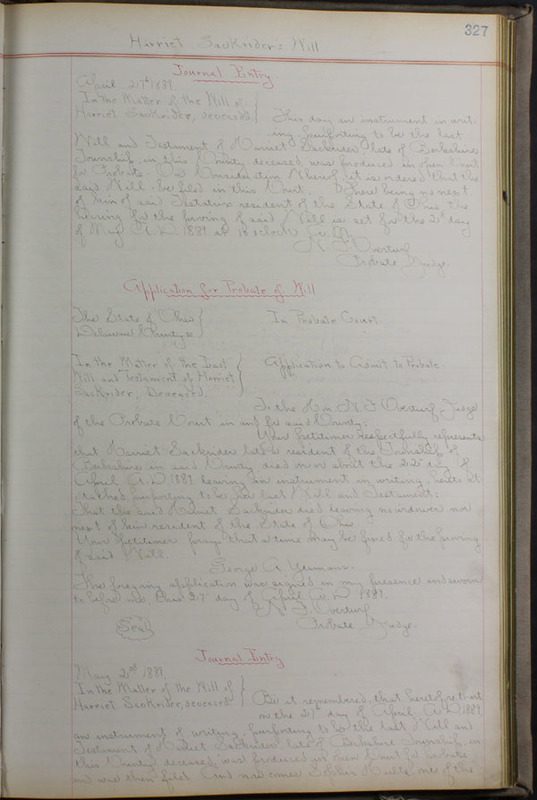 327
Harriet Sackrider's Will
Journal Entry
April 27th 1889.
In the Matter of the Will of
Harriet Sackrider, deceased.
This day an instrument in writ-
ing purporting to be the last
Will and Testament of Harriet Sackrider late of Berkshire
Township, in this County deceased, was produced in open Court
for Probate. On Consideration Whereof, it is ordered that the
said Will be filed in this Court. There being no next
of kin of said Testatrix resident of the State of Ohio, the
hearing for the proving of said Will is set for the 2d day
of May A.D. 1889 at 10 o'clock
Overturf
Probate Judge.
Application for Probate of Will
The State of Ohio
Delaware County ss
In Probate Court.
In the Matter of the Last
Will and Testament of Harriet
Sackrider, Deceased.
Application to Court to Probate
To the Hon. Overturf, Judge
of the Probate Court in and for said County:
Your petitioner respectfully represents
that Harriet Sackrider late a resident of the Township of
Berkshire in said County died on or about the 22d day of
April A.D. 1889 leaving an instrument in writing, hereto at-
tached, purporting to be her last Will and Testament:
That the said Harriet Sackrider died leaving no widower nor
next of kin resident of the State of Ohio
Your petitioner prays that a time may be fixed for the proving
of said Will.
George A. Yeamans.
The foregoing application was signed in my presence and sworn
to before me, this 27 day of April A.D. 1889.
Overturf
Seal
Probate Judge.
Journal Entry
May 2nd 1889.
In the Matter of the Will of
Harriet Sackrider, deceased
Be it remembered, that heretofore to wit
on the 27 day of April A.D. 1889,
an instrument of writing, purporting to be the last Will and
Testament of Harriet Sackrider late of Berkshire Township, in
this County deceased, was produced in open Court for probate
and was then filed. And now comes one of the